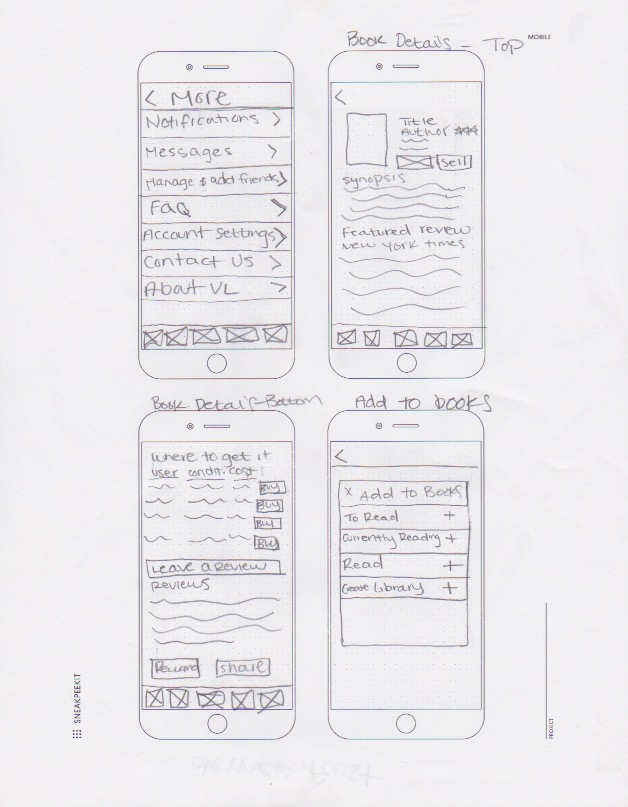 MOBILE
Book Details - Top
< More
Notifications >
Messages >
Manage & add friends >
FAQ >
Account settings >
Contact Us >
About VL >
<
Title
Author ***
sell
synopsis
Featured review
New York times
Book Details-Bottom
Where to get it
user condit. cost
Buy
Buy
Buy
Buy
Leave a Review
Reviews
share
Add to books
<
x Add to Books
To Read +
Currently Reading +
Read +
Create Library +
SNEAKPEEKIT
PROJECT